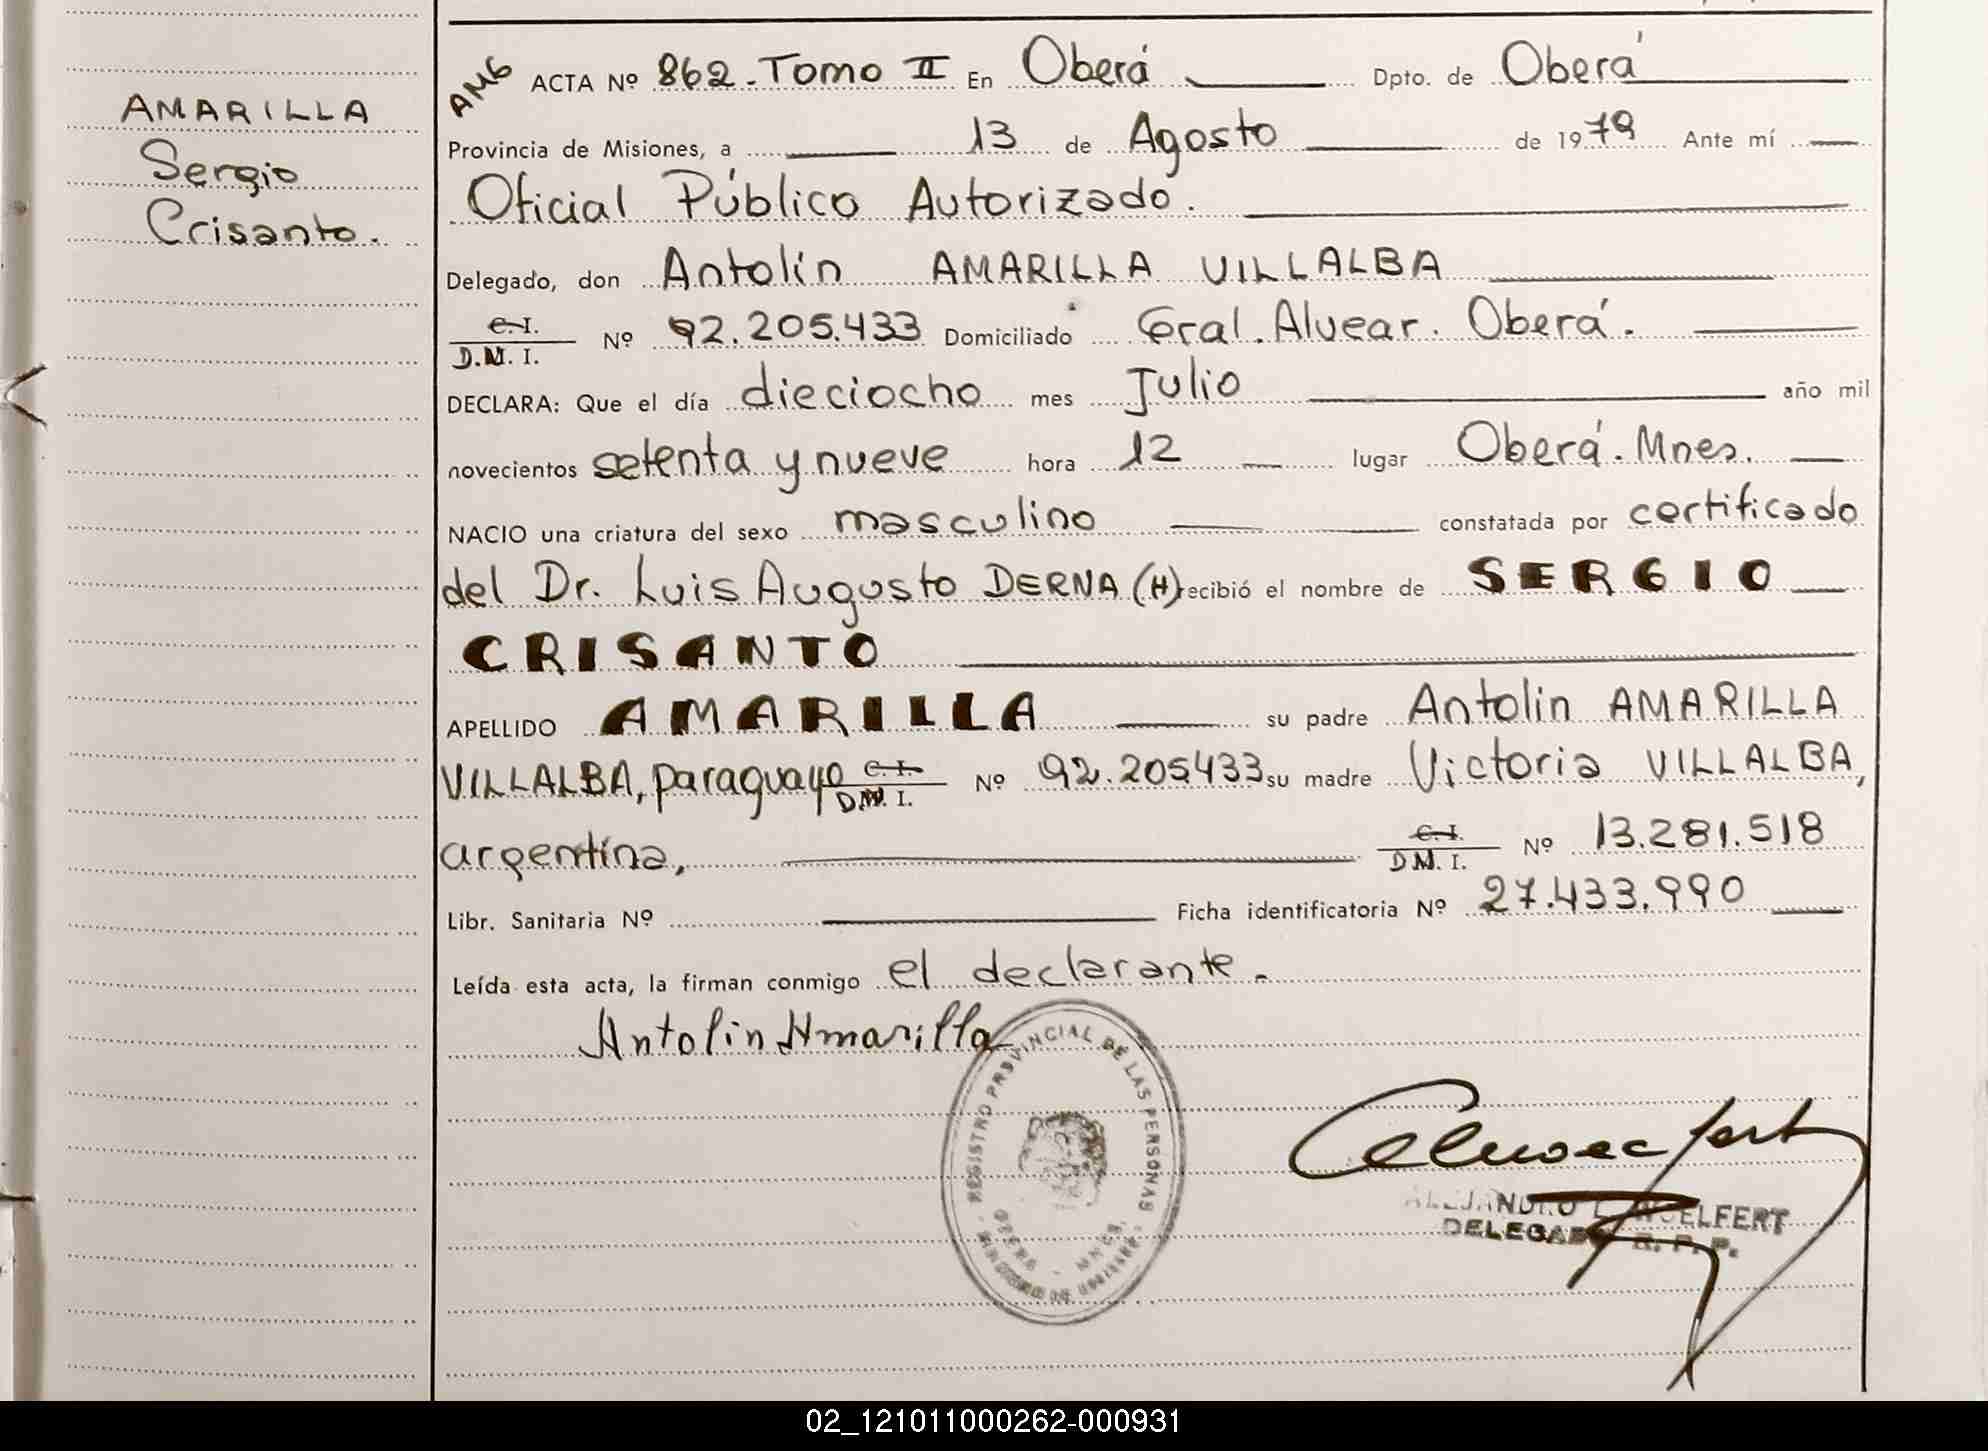 AMARILLA
Sergio
Crisanto.
AMG ACTA Nº 862. Tomo II En Oberá Dpto. de Oberá
Provincia de Misiones, a 13 de Agosto de 1979 Ante mí
Oficial Público Autorizado.
Delegado, don Antolín AMARILLA VILLALBA
C.I. / D.N.I. Nº 92.205.433 Domiciliado Gral. Alvear. Oberá.
DECLARA: Que el día dieciocho mes Julio año mil
novecientos setenta y nueve hora 12 lugar Oberá. Mnes.
NACIO una criatura del sexo masculino constatada por certificado
del Dr. Luis Augusto DERNA (H) recibió el nombre de SERGIO
CRISANTO
APELLIDO AMARILLA su padre Antolin AMARILLA
VILLALBA, paraguayo C.I. / D.N.I. Nº 92.205433 su madre Victoria VILLALBA,
argentina, C.I. / D.N.I. Nº 13.281.518
Libr. Sanitaria Nº Ficha identificatoria Nº 27.433.990
Leída esta acta, la firman conmigo el declarante.
Antolin Amarilla
REGISTRO PROVINCIAL DE LAS PERSONAS
OBERA - MNES.
ALEJANDRO WOELFERT
DELEGADO R. P. P.
02_121011000262-000931